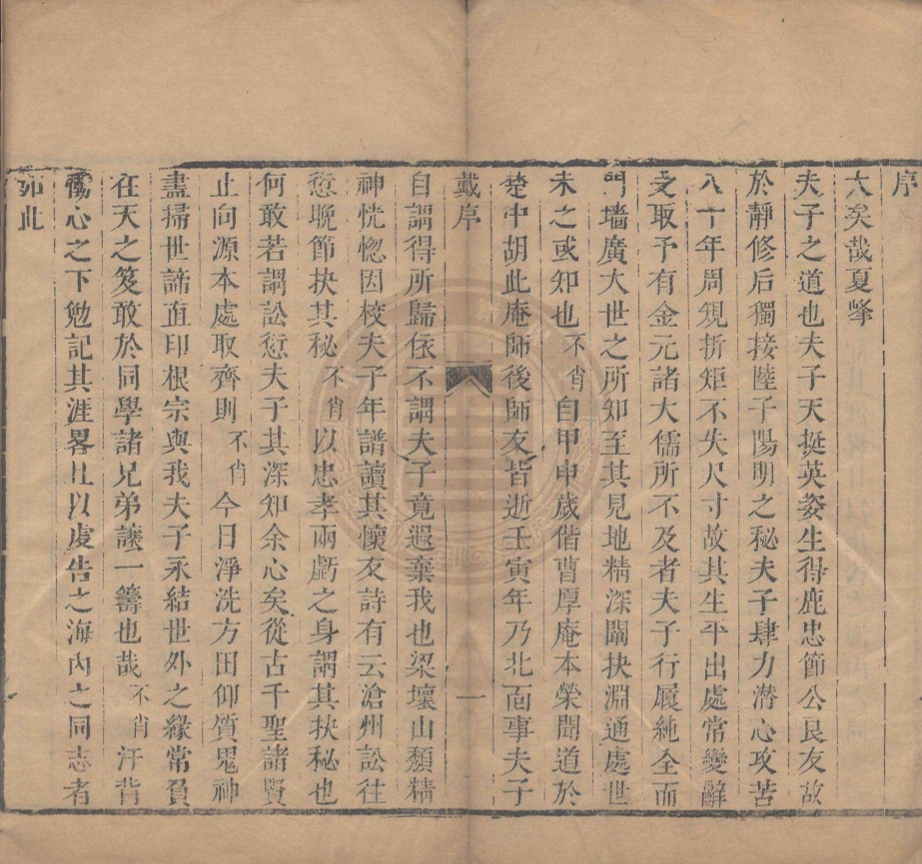 序
大矣哉夏峯
夫子之道也夫子天挺英姿生得鹿忠節公良友故
於靜修后獨接陸子陽明之秘夫子肆力潛心攻苦
八十年周規折矩不失尺寸故其生平出處常變辭
受取予有金元諸大儒所不及者夫子行履純全而
門墻廣大世之所知至其見地精深闡抉淵通處世
未之或知也不肖自甲申歲偕曹厚庵本榮聞道於
楚中胡此庵師後師友皆逝壬寅年乃北面事夫子
戴序 一
自謂得所歸依不謂夫子竟遐棄我也梁壞山頹精
神恍惚因校夫子年譜讀其懷友詩有云滄州訟往
愆晚節抉其秘不肖以忠孝兩虧之身謂其抉秘也
何敢若謂訟愆夫子其深知余心矣從古千聖諸賢
止向源本處取齊則不肖今日淨洗方田仰質鬼神
盡掃世諦直印根宗與我夫子永結世外之緣常負
在天之笈敢於同學諸兄弟讓一籌也哉不肖汗背
傷心之下勉記其涯畧且以虔告之海內之同志者
如此